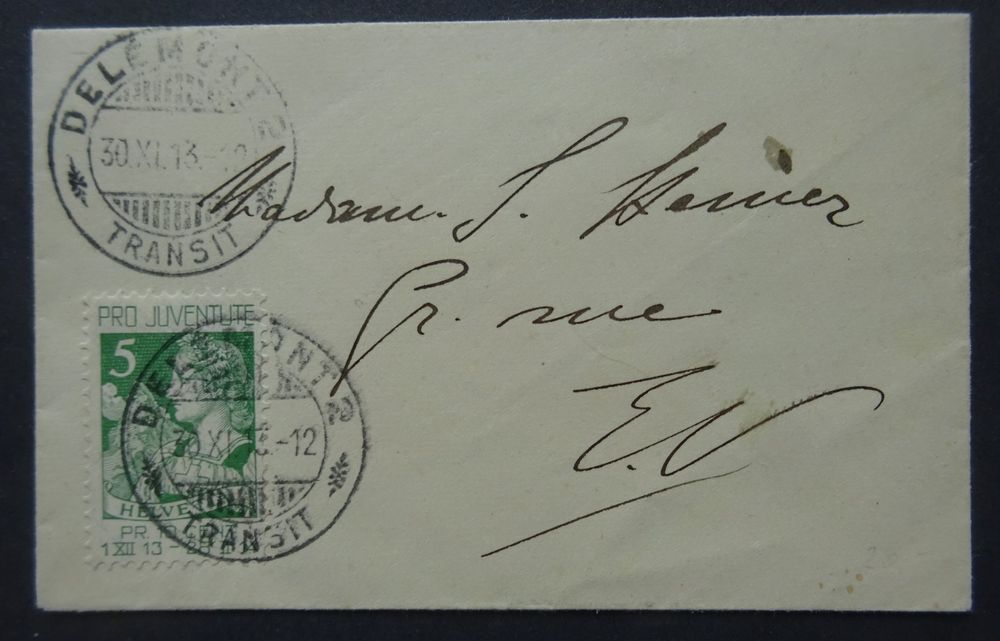 DELÉMONT 2
30.XI.13.-12
TRANSIT
Madame. S.
Gr. rue
E.V
PRO JUVENTUTE
5
HELVE
PR. 10 CENT.
1 XII 13 -
DELÉMONT 2
30.XI.13.-12
TRANSIT